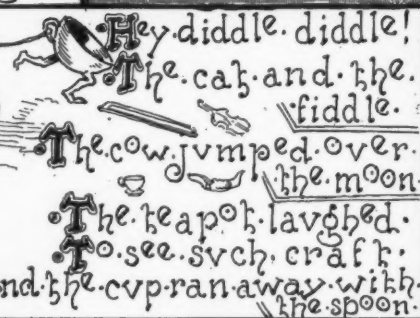 Hey·diddle·diddle!
The·cat·and·the·
fiddle·
The·cow·jvmped·over·
the·moon·
The·teapot·lavghed·
To·see·svch·craft·
nd·the·cvp·ran·away·with·
the·spoon·